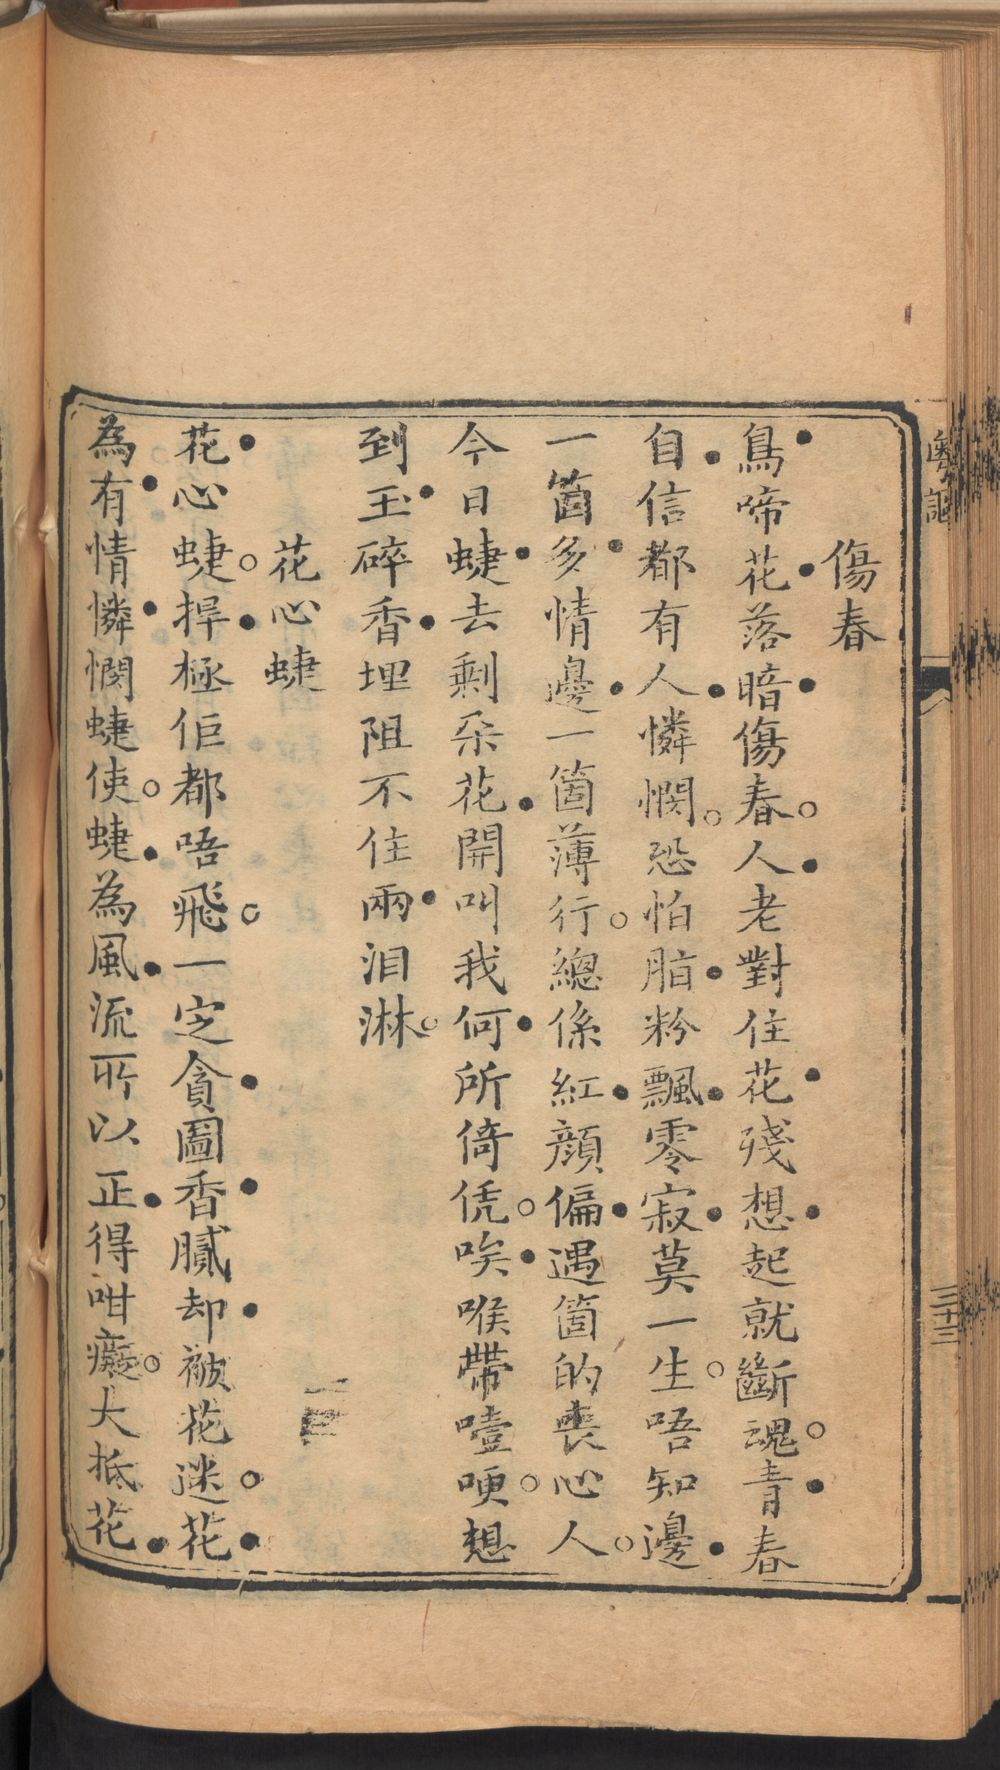 粵謳
三十三
傷春
鳥啼花落暗傷春人老對住花殘想起就斷魂青春
自信都有人憐憫恐怕脂粉飄零寂莫一生唔知邊
一箇多情邊一箇薄行總係紅顏偏遇箇的喪心人
今日蜨去剩朵花開叫我何所倚凭唉喉帶噎哽想
到玉碎香埋阻不住兩泪淋
花心蜨
花心蜨捍極佢都唔飛一定貪圖香膩却被花迷花
為有情憐憫蜨使蜨為風流所以正得咁癡大抵花